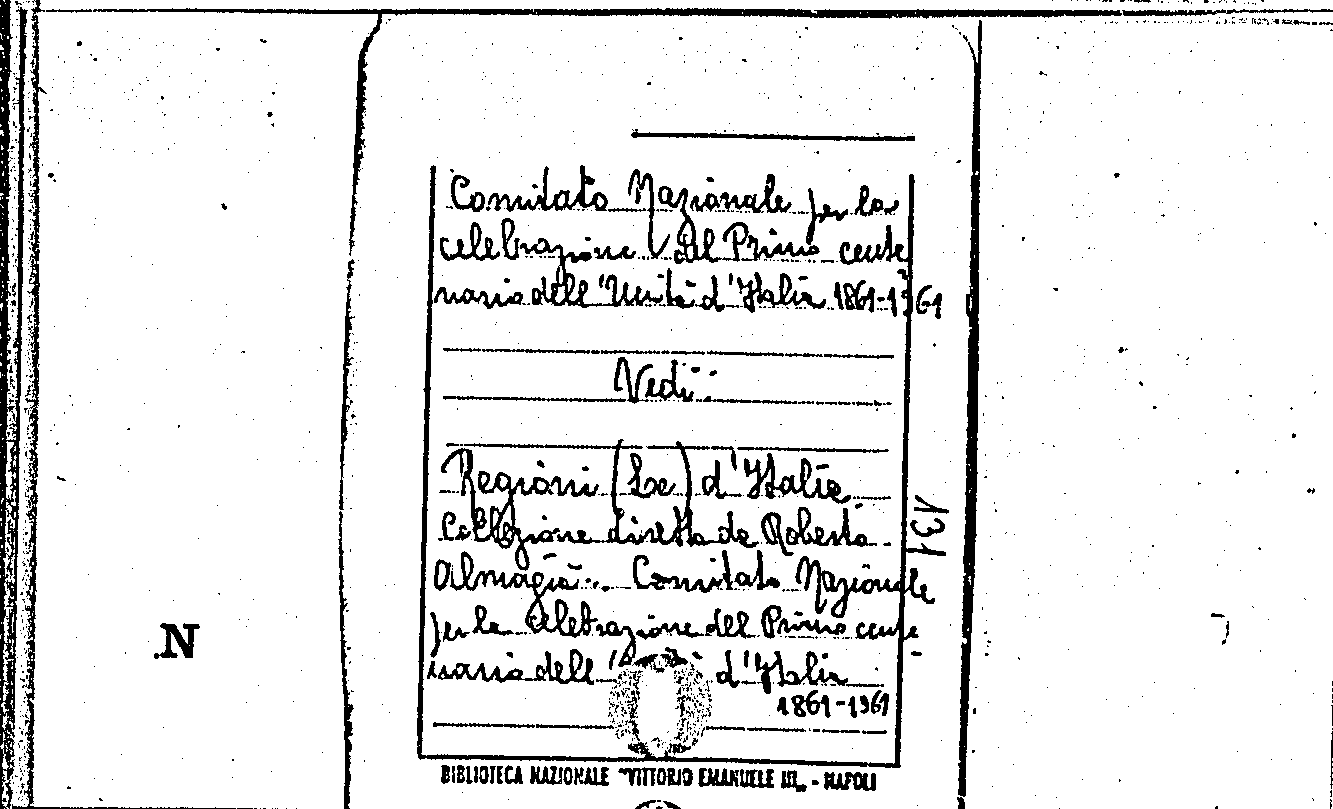 Comitato Nazionale per la
celebrazione del Primo cente
nario dell'Unità d'Italia 1861-1961
Vedi:
Regioni (Le) d'Italia
Collezione diretta da Roberto
Almagià... Comitato Nazionale
per la celebrazione del Primo cente
nario dell' d'Italia
1861-1961
131
.N
BIBLIOTECA NAZIONALE "VITTORIO EMANUELE III„ - NAPOLI